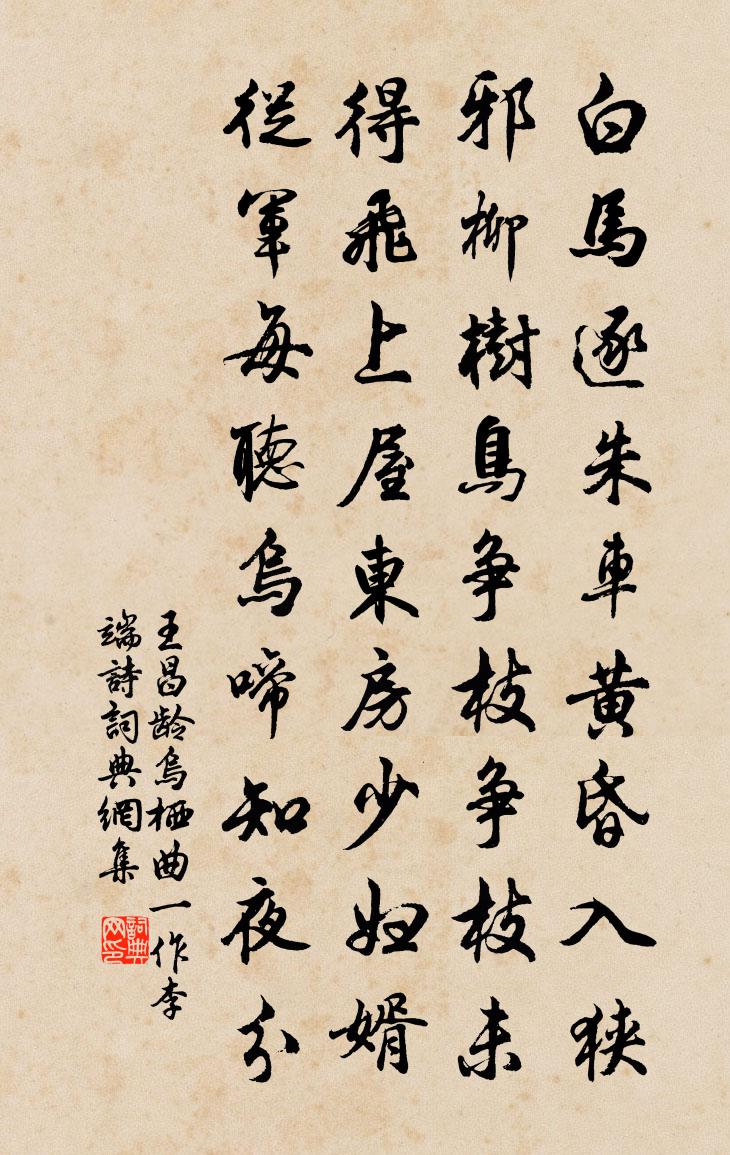 白馬逐朱車黃昏入狹
邪柳樹鳥争枝争枝未
得飛上屋東房少婦婿
從軍每聽烏啼知夜分
王昌龄烏栖曲一作李
端詩詞典網集
詞典
网印